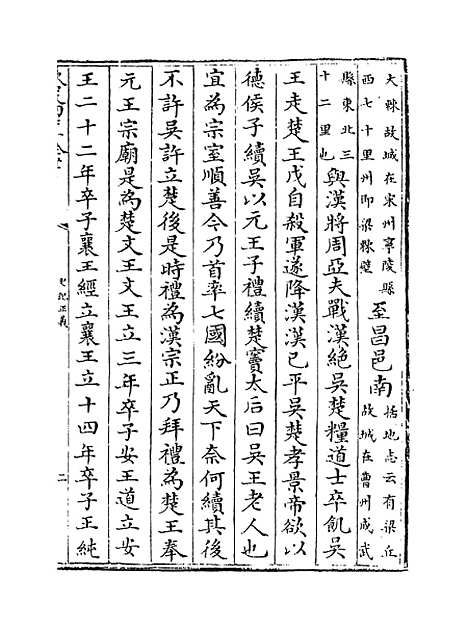 大棘故城在宋州寧陵縣
西七十里州即梁棘壁
至昌邑南
括地志云有梁丘
故城在曹州成武
縣東北三
十二里也
與漢將周亞夫戰漢絕吳楚糧道士卒飢吳
王走楚王戊自殺軍遂降漢漢已平吳楚孝景帝欲以
德侯子續吳以元王子禮續楚竇太后曰吳王老人也
宜為宗室順善今乃首率七國紛亂天下奈何續其後
不許吳許立楚後是時禮為漢宗正乃拜禮為楚王奉
元王宗廟是為楚文王文王立三年卒子安王道立安
王二十二年卒子襄王經立襄王立十四年卒子王純
史記正義
二